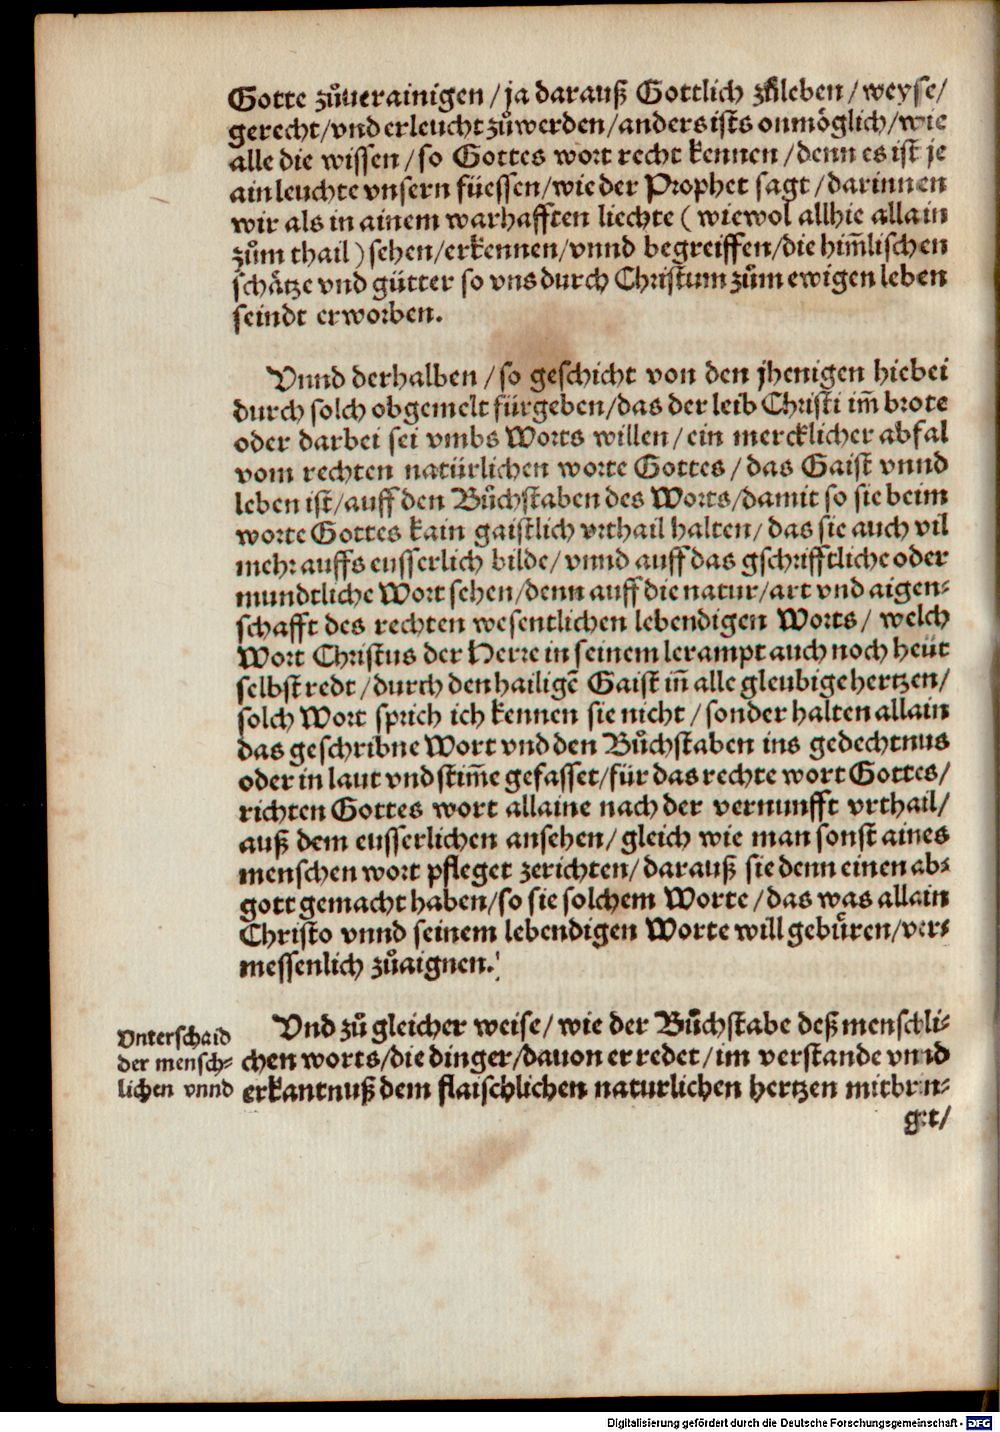 Gotte zůuerainigen / ja darauß Gottlich zůleben / weyse/
gerecht/ vnd erleucht zůwerden/ anders ists onmöglich/ wie
alle die wissen / so Gottes wort recht kennen / denn es ist je
ain leuchte vnsern füessen/ wie der Prophet sagt / darinnen
wir als in ainem warhafften liechte ( wiewol allhie allain
zům thail ) sehen/ erkennen/ vnnd begreiffen/ die him̃lischen
schätze vnd gütter so vns durch Christum zům ewigen leben
seindt erworben.
Vnnd derhalben / so geschicht von den jhenigen hiebei
durch solch obgemelt fürgeben/ das der leib Christi im̃ brote
oder darbei sei vmbs Worts willen / ein mercklicher abfal
vom rechten natürlichen worte Gottes / das Gaist vnnd
leben ist/ auff den Bůchstaben des Worts/ damit so sie beim
worte Gottes kain gaistlich vrthail halten/ das sie auch vil
mehr auffs eusserlich bilde/ vnnd auff das gschrifftliche oder
mundtliche Wort sehen/ denn auff die natur/ art vnd aigen-
schafft des rechten wesentlichen lebendigen Worts/ welch
Wort Christus der Herre in seinem lerampt auch noch heüt
selbst redt / durch den hailigẽ Gaist in̄ alle gleubige hertzen/
solch Wort sprich ich kennen sie nicht / sonder halten allain
das geschribne Wort vnd den Bůchstaben ins gedechtnus
oder in laut vnd stim̃e gefasset/ für das rechte wort Gottes/
richten Gottes wort allaine nach der vernunfft vrthail/
auß dem eusserlichen ansehen/ gleich wie man sonst aines
menschen wort pfleget zerichten/ darauß sie denn einen ab-
gott gemacht haben/ so sie solchem Worte / das was allain
Christo vnnd seinem lebendigen Worte will gebüren/ ver-
messenlich zůaignen.
Vnterschaid
der mensch-
lichen vnnd
Vnd zů gleicher weise/ wie der Bůchstabe deß menschli-
chen worts/ die dinger/ dauon er redet/ im verstande vnnd
erkantnuß dem flaischlichen naturlichen hertzen mitbrin-
get/
Digitalisierung gefördert durch die Deutsche Forschungsgemeinschaft - DFG